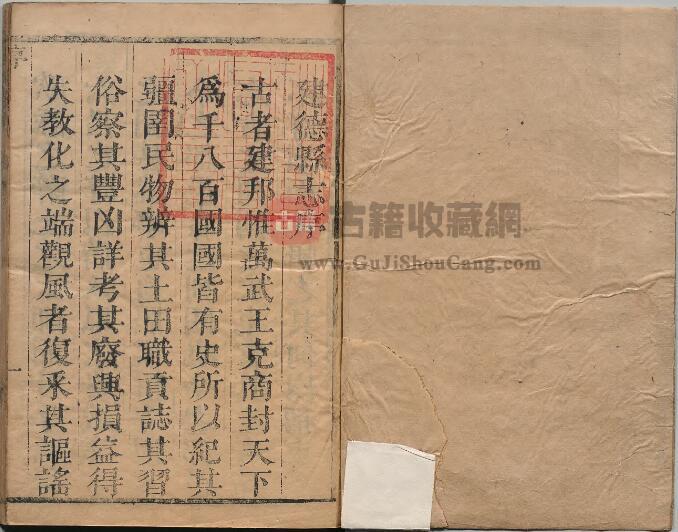 建德縣志序
古者建邦惟萬武王克商封天下
為千八百國國皆有史所以紀其
疆圉民物辨其土田職貢誌其習
俗察其豐凶詳考其廢興損益得
失教化之端觀風者復采其謳謠
序
一
古籍收藏網
www.GuJiShouCang.com